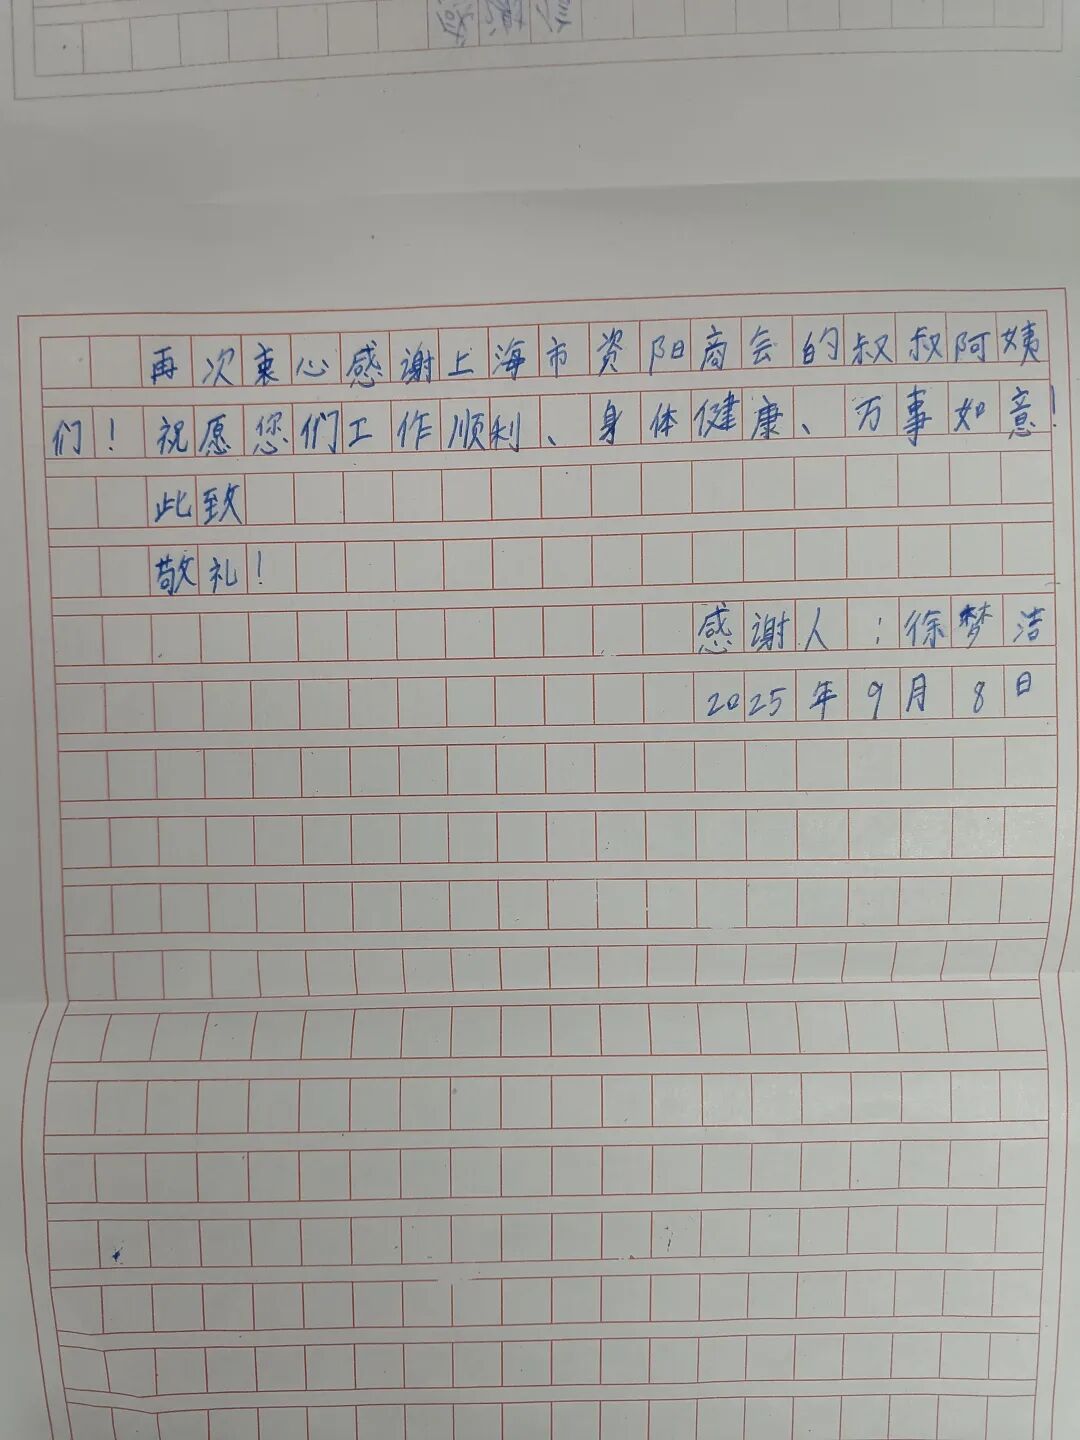 再次衷心感谢上海市资阳商会的叔叔阿姨
们！祝愿您们工作顺利、身体健康、万事如意！
此致
敬礼！
感谢人：徐梦洁
2025年9月8日